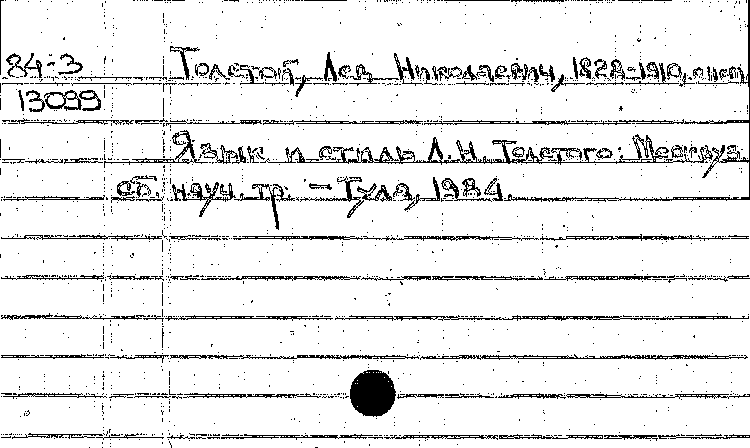 84-3 Толстой, Лев Николаевич, 1828-1910, о нем
13099
Язык и стиль Л.Н. Толстого: Межвуз.
сб. науч. тр. – Тула, 1984.